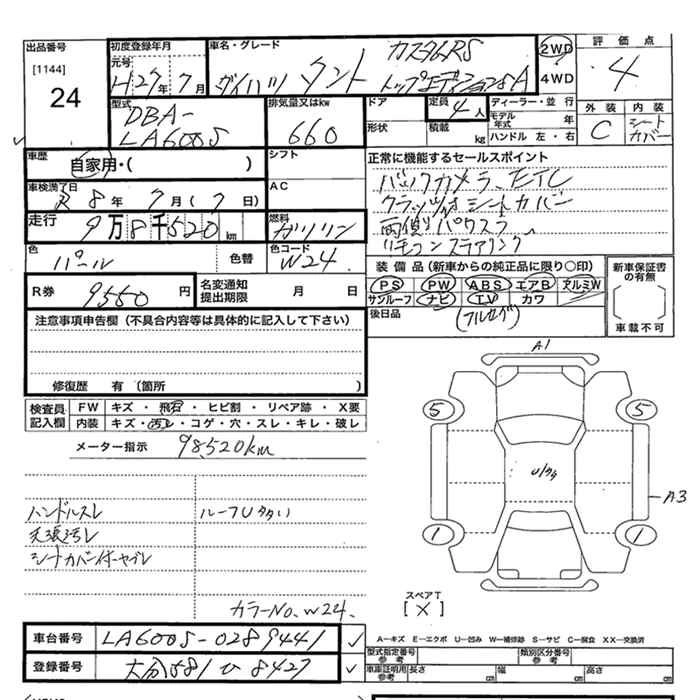 出品番号
[1144]
24
初度登録年月
元号
H27年7月
車名・グレード
カスタムRS
ダイハツ タント トップエディションSA
2WD
4WD
評価点
4
外装 内装
C シートカバー
型式
DBA-
LA600S
排気量又はkw
660
ドア
形状
定員
4人
積載 kg
ディーラー・並行
モデル年式 年
ハンドル 左・右
車歴
自家用・( )
シフト
正常に機能するセールスポイント
バックカメラ、ETC
シートカバー
両側パワスラ
リモコン ステアリング
車検満了日
R8年7月(7日)
AC
走行
9万8千520km
燃料
ガソリン
色
パール
色替
色コード
W24
装備品(新車からの純正品に限り○印)
PS PW ABS エアB アルミW
サンルーフ ナビ TV カワ
後日品
(フルセグ)
新車保証書の有無
車載不可
R券
9550円
名変通知提出期限 月 日
注意事項申告欄(不具合内容等は具体的に記入して下さい)
修復歴 有(箇所 )
検査員記入欄
FW キズ・飛石・ヒビ割・リペア跡・X要
内装 キズ・汚レ・コゲ・穴・スレ・キレ・破レ
メーター指示 98,520km
ハンドルスレ ルーフUタタイ
天張汚レ
シートカバー付
カラーNo. W24.
A1
5 5
U/タタ
A3
1 1
スペアT
[X]
A-キズ E-エクボ U-凹み W-補修跡 S-サビ C-腐食 XX-交換済
車台番号
LA600S-0289441
登録番号
大分581ひ8427
型式指定番号 参考
類別区分番号 参考
車庫証明用 参考
長さ cm 幅 cm 高さ cm